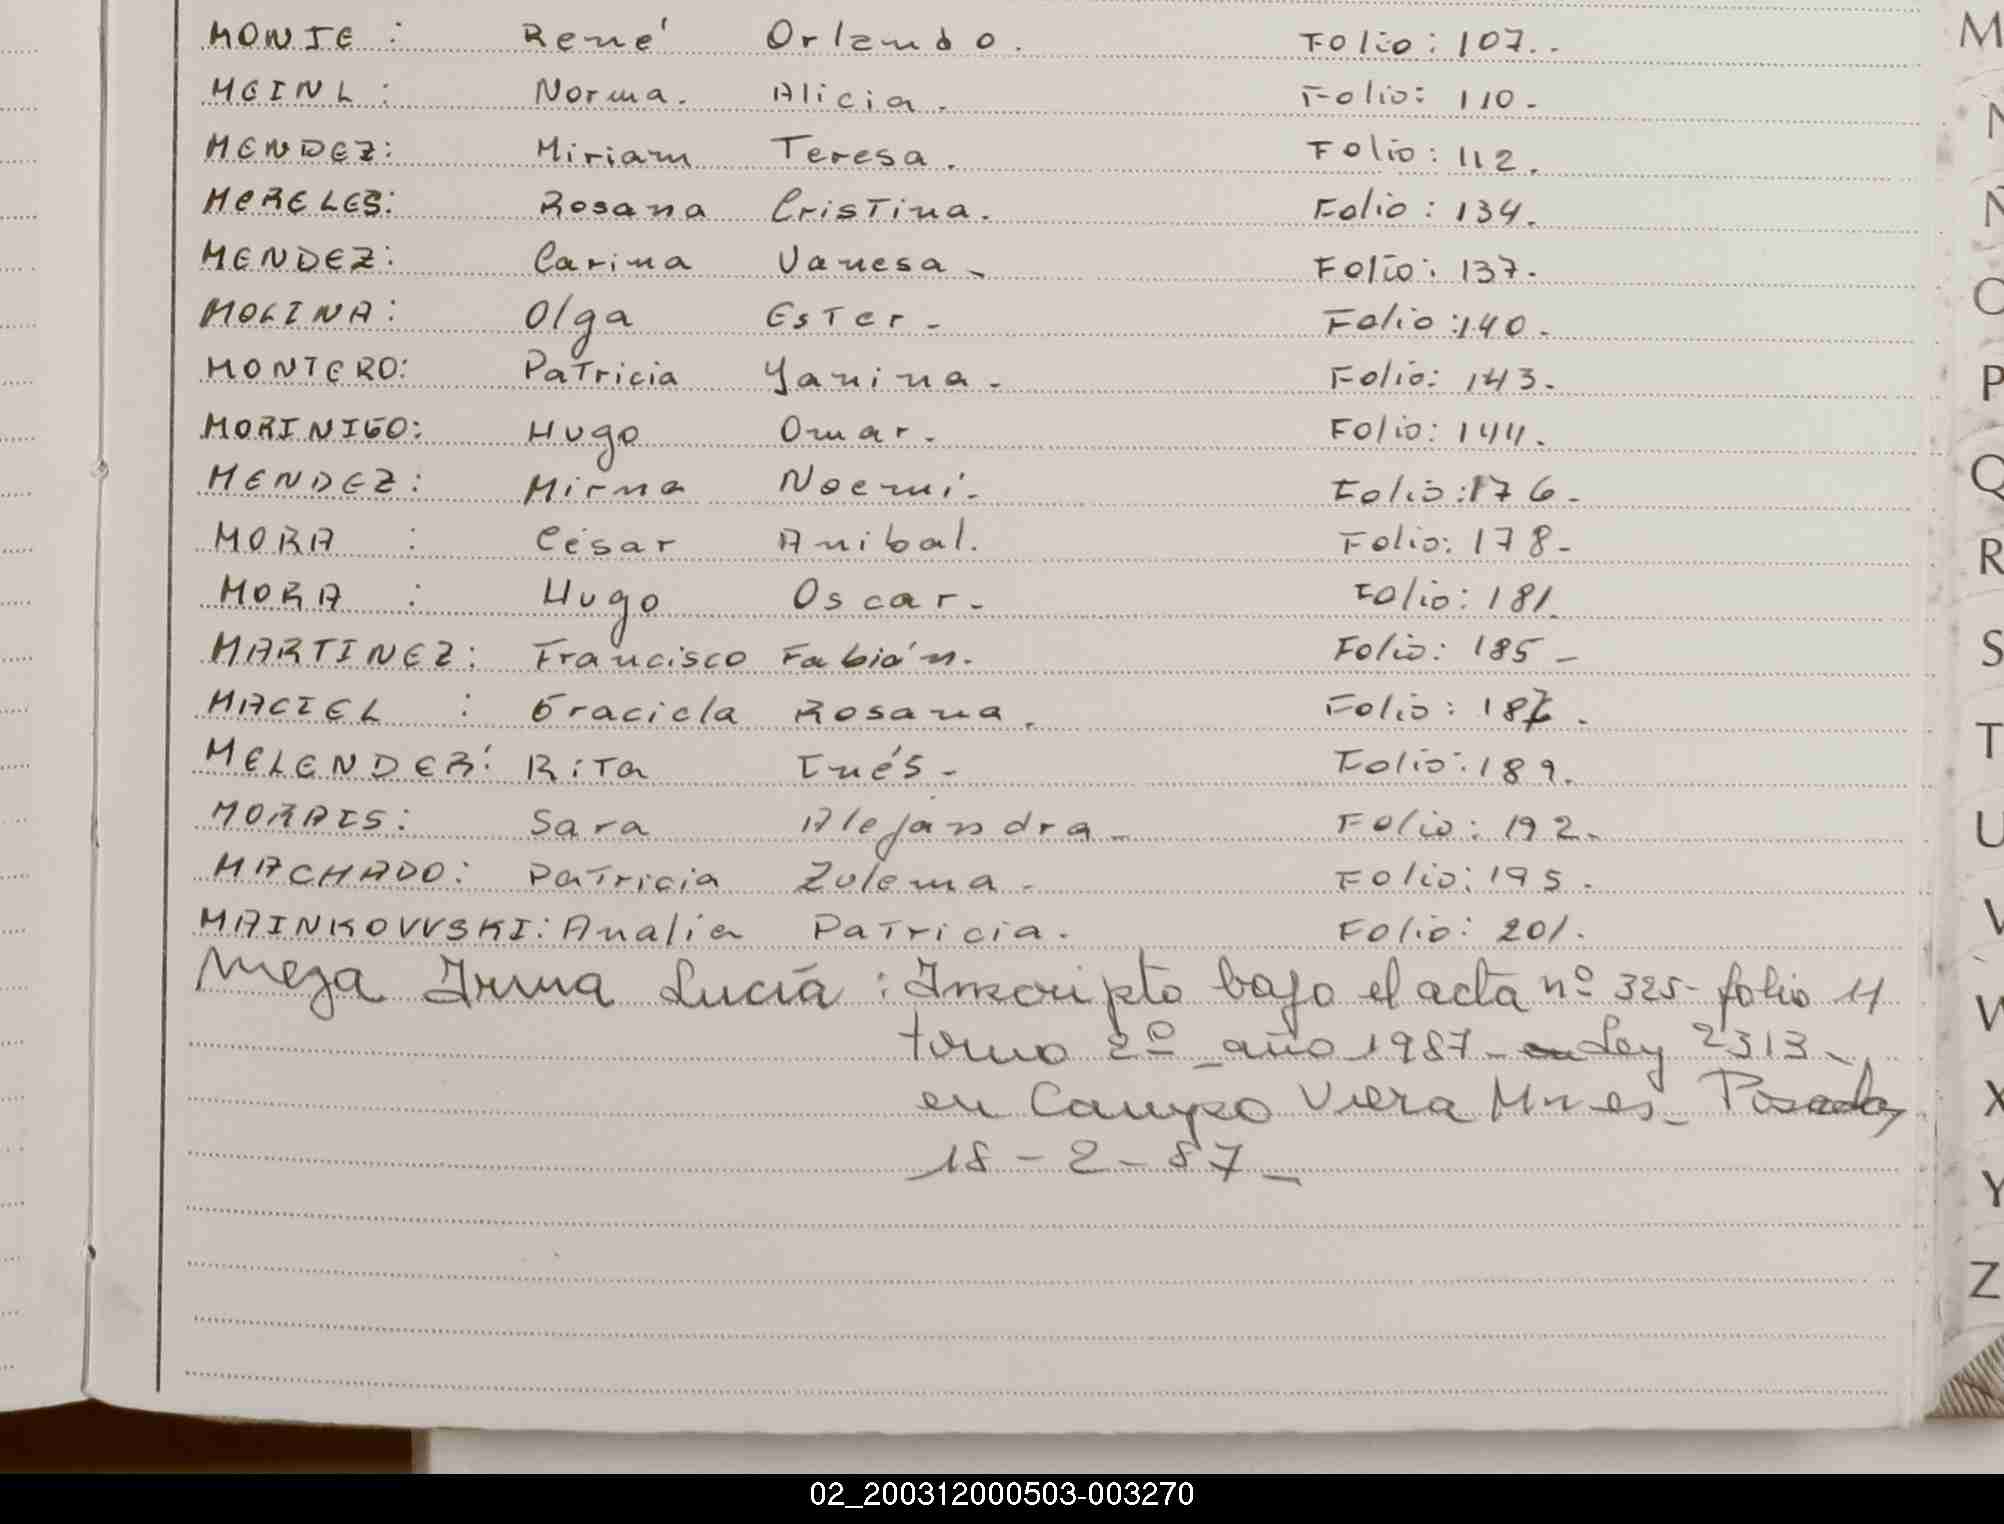 MONTE : René Orlando. Folio: 107..
MEINL : Norma. Alicia. Folio: 110.
MENDEZ: Miriam Teresa. Folio: 112.
MERELES: Rosana Cristina. Folio: 134.
MENDEZ: Carina Vanesa - Folio: 137.
MOLINA: Olga Ester - Folio: 140.
MONTERO: Patricia Yanina - Folio: 143.
MORINIGO: Hugo Omar. Folio: 144.
MENDEZ: Mirna Noemí. Folio: 176-
MORA : César Anibal. Folio: 178-
MORA : Hugo Oscar - Folio: 181.
MARTINEZ: Francisco Fabián. Folio: 185-
MACIEL : Graciela Rosana. Folio:
MELENDER: Rita Inés - Folio: 189.
MORAIS: Sara Alejandra - Folio: 192.
MACHADO: Patricia Zulema - Folio: 195.
MAINKOVVSKI: Analia Patricia. Folio: 201.
Meza Irma Lucia : Inscripto bajo el acta nº 325- folio 11
tomo 2º año 1987 - Ley 2313 -
en Campo Viera Mnes - Posadas
18 - 2 - 87 -
M
N
Ñ
O
P
Q
R
S
T
U
V
W
X
Y
Z
02_200312000503-003270